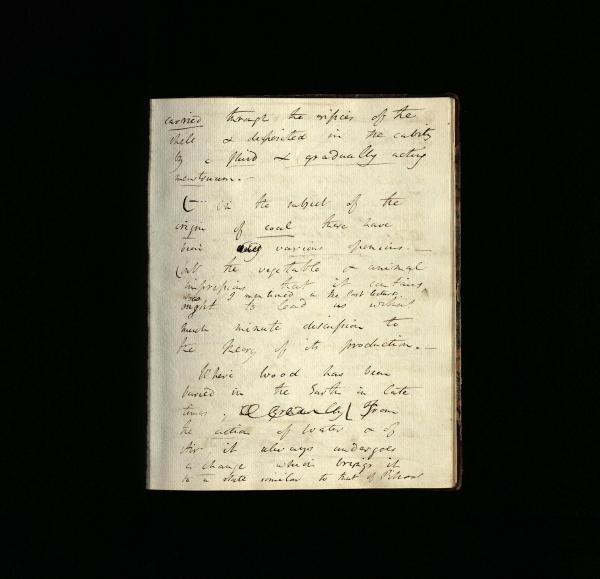 carried through the orifices of the
shell & deposited in the cavity
by a fluid & gradually acting
menstruum. —
On the subject of the
origin of coal there have
been various opinions. —
but the vegetable & animal
impressions that it contains
I mentioned in the last lecture
ought to lead us without
much minute discussion to
the theory of its production. —
Where wood has been
buried in the Earth in late
times. gradually from
the action of Water & of
Air it always undergoes
a change which brings it
to a state similar to that of